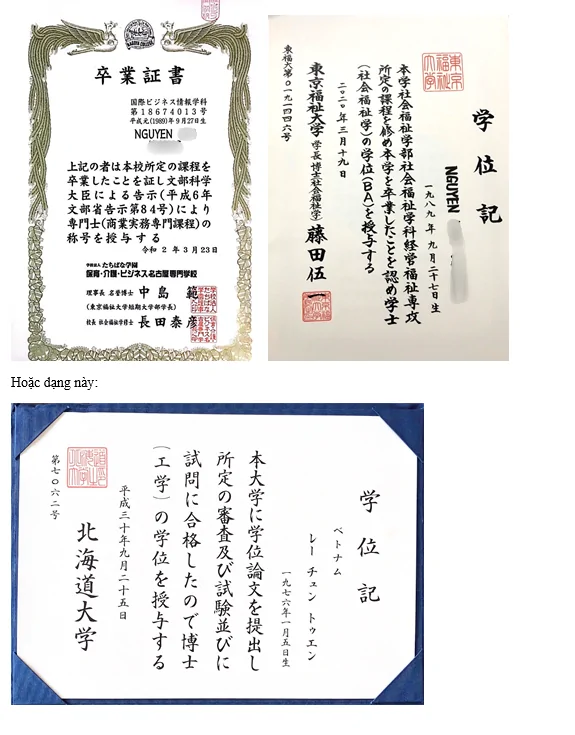 卒業証書
国際ビジネス情報学科
第18674013号
平成元(1989)年9月27日生
NGUYEN
上記の者は本校所定の課程を
卒業したことを証し文部科学
大臣による告示(平成6年
文部省告示第84号)により
専門士(商業実務専門課程)の
称号を授与する
令和 2 年 3 月 23 日
学校法人 たちばな学園
保育・介護・ビジネス名古屋専門学校
理事長 名誉博士 中島 範
(東京福祉大学短期大学部学長)
校長 社会福祉学修士 長田泰彦
学位記
NGUYEN
一九八九年 九月二十七日生
本学社会福祉学部社会福祉学科経営福祉専攻
所定の課程を修め本学を卒業したことを認め学士
(社会福祉学)の学位(BA)を授与する
二〇二〇年三月十九日
東京福祉大学 学長 博士(社会福祉学) 藤田伍一
東福大第〇一九一四四六号
東京福祉大学
Hoặc dạng này:
学位記
ベトナム
レー チュン トゥエン
一九七六年一月五日生
本大学に学位論文を提出し
所定の審査及び試験並びに
試問に合格したので博士
(工学)の学位を授与する
平成三十年九月二十五日
北海道大学
第七〇六二号